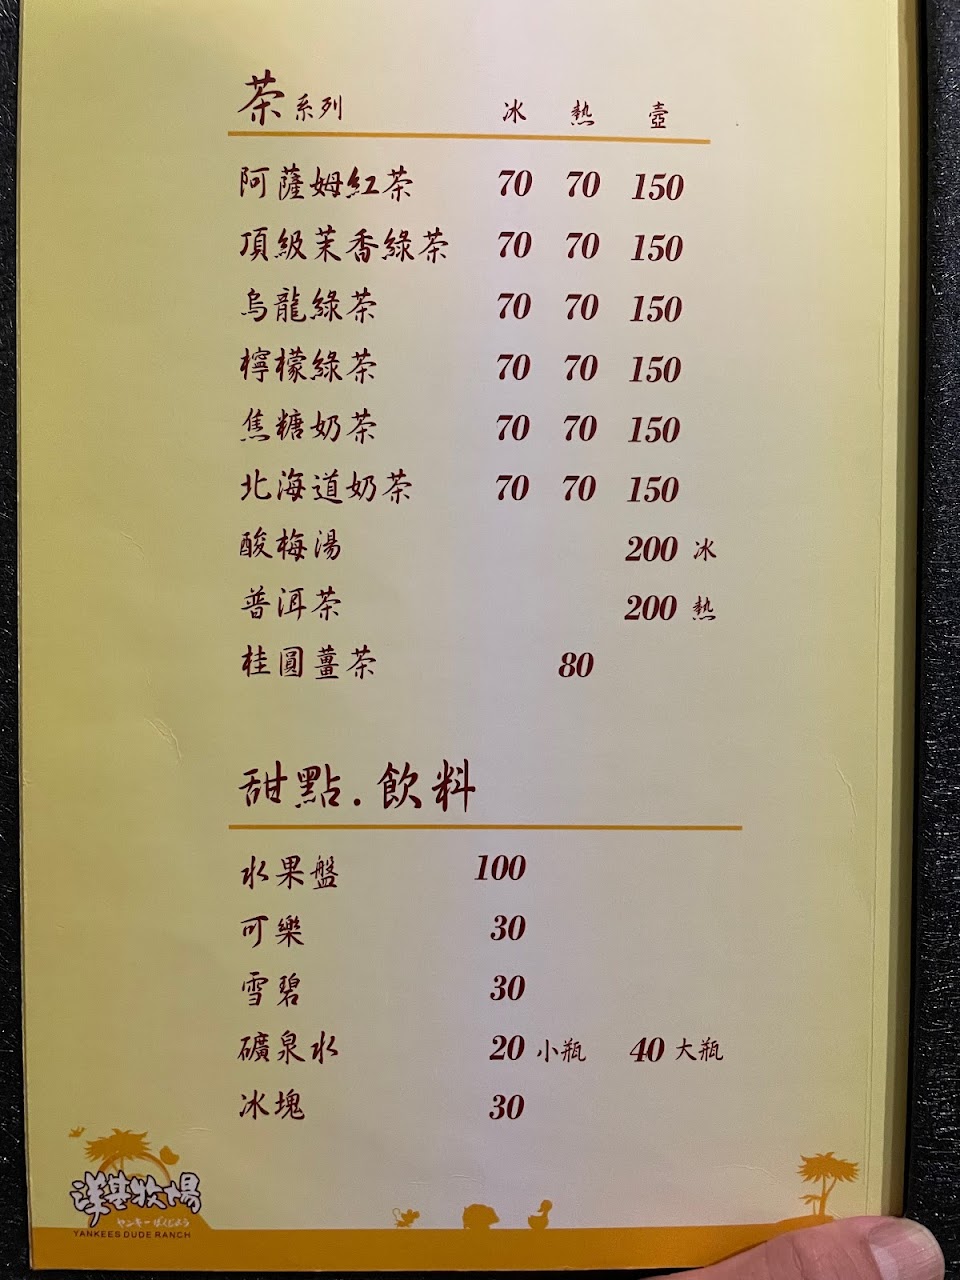 茶系列 冰 熱 壺
阿薩姆紅茶 70 70 150
頂級茉香綠茶 70 70 150
烏龍綠茶 70 70 150
檸檬綠茶 70 70 150
焦糖奶茶 70 70 150
北海道奶茶 70 70 150
酸梅湯 200 冰
普洱茶 200 熱
桂圓薑茶 80
甜點.飲料
水果盤 100
可樂 30
雪碧 30
礦泉水 20 小瓶 40 大瓶
冰塊 30
洋基牧場
ヤンキーぼくじょう
YANKEES DUDE RANCH